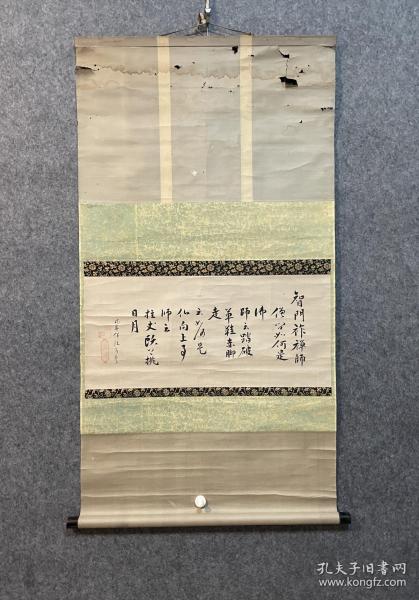 智門祚禪師
僧問如何是
佛
師云踏破
草鞋赤脚
走
云如何是
仏向上事
師云
拄丈頭上挑
日月
孔夫子旧书网
www.kongfz.com